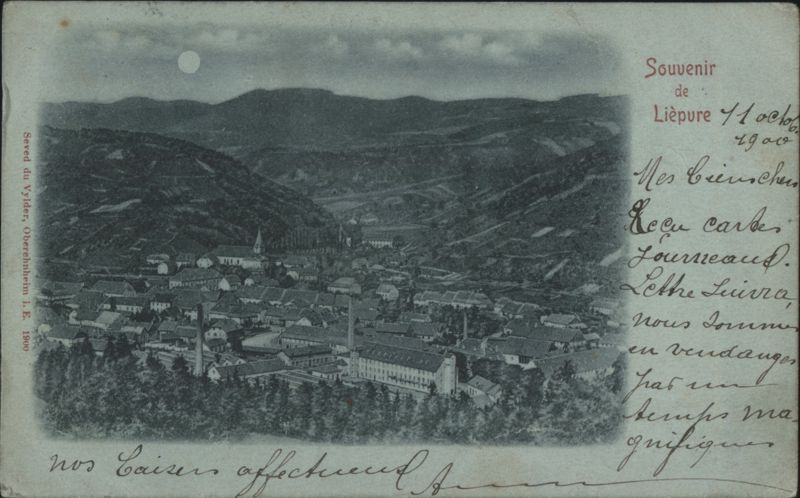 Souvenir
de
Lièpvre
11 octob
1900
Mes biens chers
Reçu cartes
Journeaux.
Lettre Suivra
nous sommes
en vendanges
par un
temps ma-
gnifiques
nos baisers affectueux
Seved du Vylder, Oberehnheim i. E. 1900